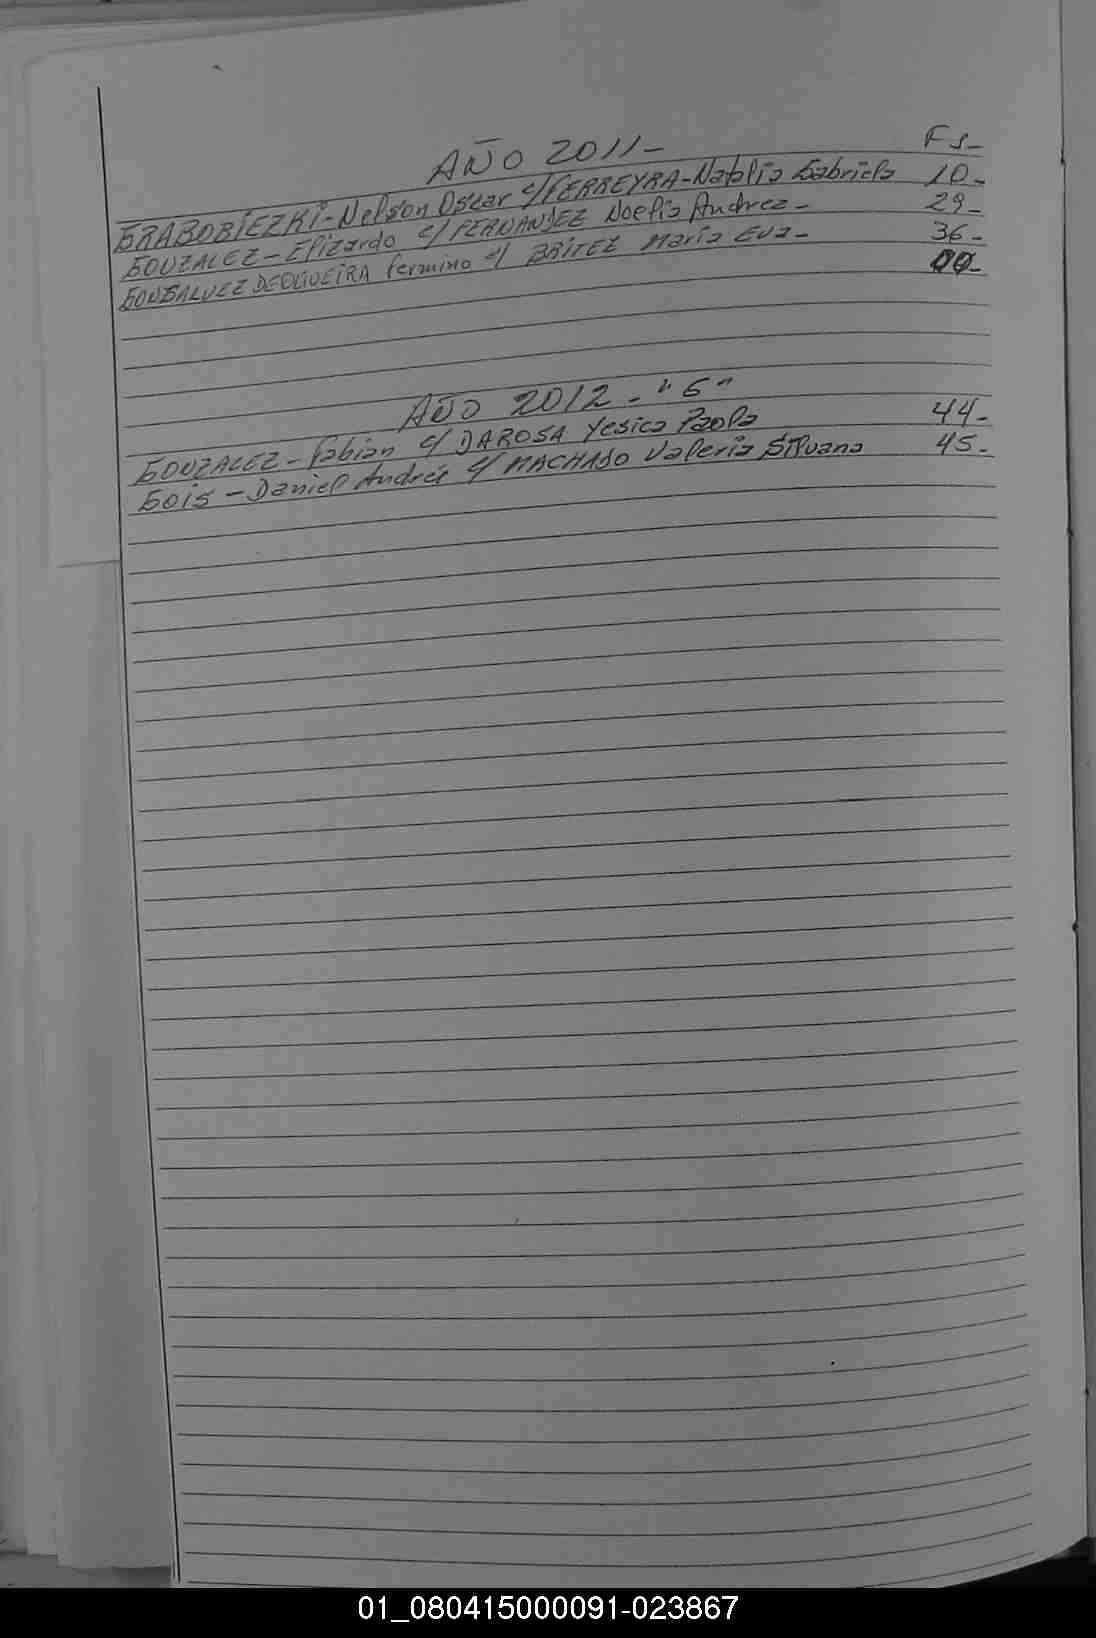 AÑO 2011- Fs-
GRABOBIEZKI-Nelson Oscar c/FERREYRA-Natalia Gabriela 10-
GONZALEZ-Elizardo c/ FERNANDEZ Noelia Andrea- 29-
GONSALVEZ DEOLIVEIRA Fermino c/ BRITEZ Maria Eva- 36-
AÑO 2012-"G"
GONZALEZ-Fabian c/ DAROSA Yesica Paola 44-
Gois-Daniel Andrés c/ MACHADO Valeria Silvana 45-
01_080415000091-023867